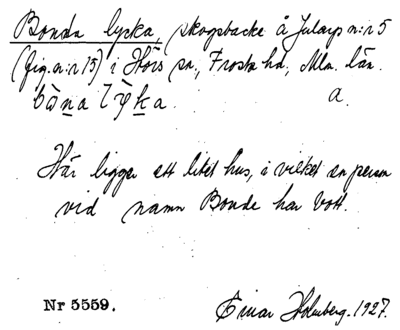 Bonda lycka, skogsbacke å Jularp n:r 5
(fig. n:r 15) i Hörs sn, Frosta hd, Mlm. län.
bò̱na ly̱ka. a.
Här ligger ett litet hus, i vilket en person
vid namn Bonde har bott.
Nr 5559. Einar Holmberg. 1927.